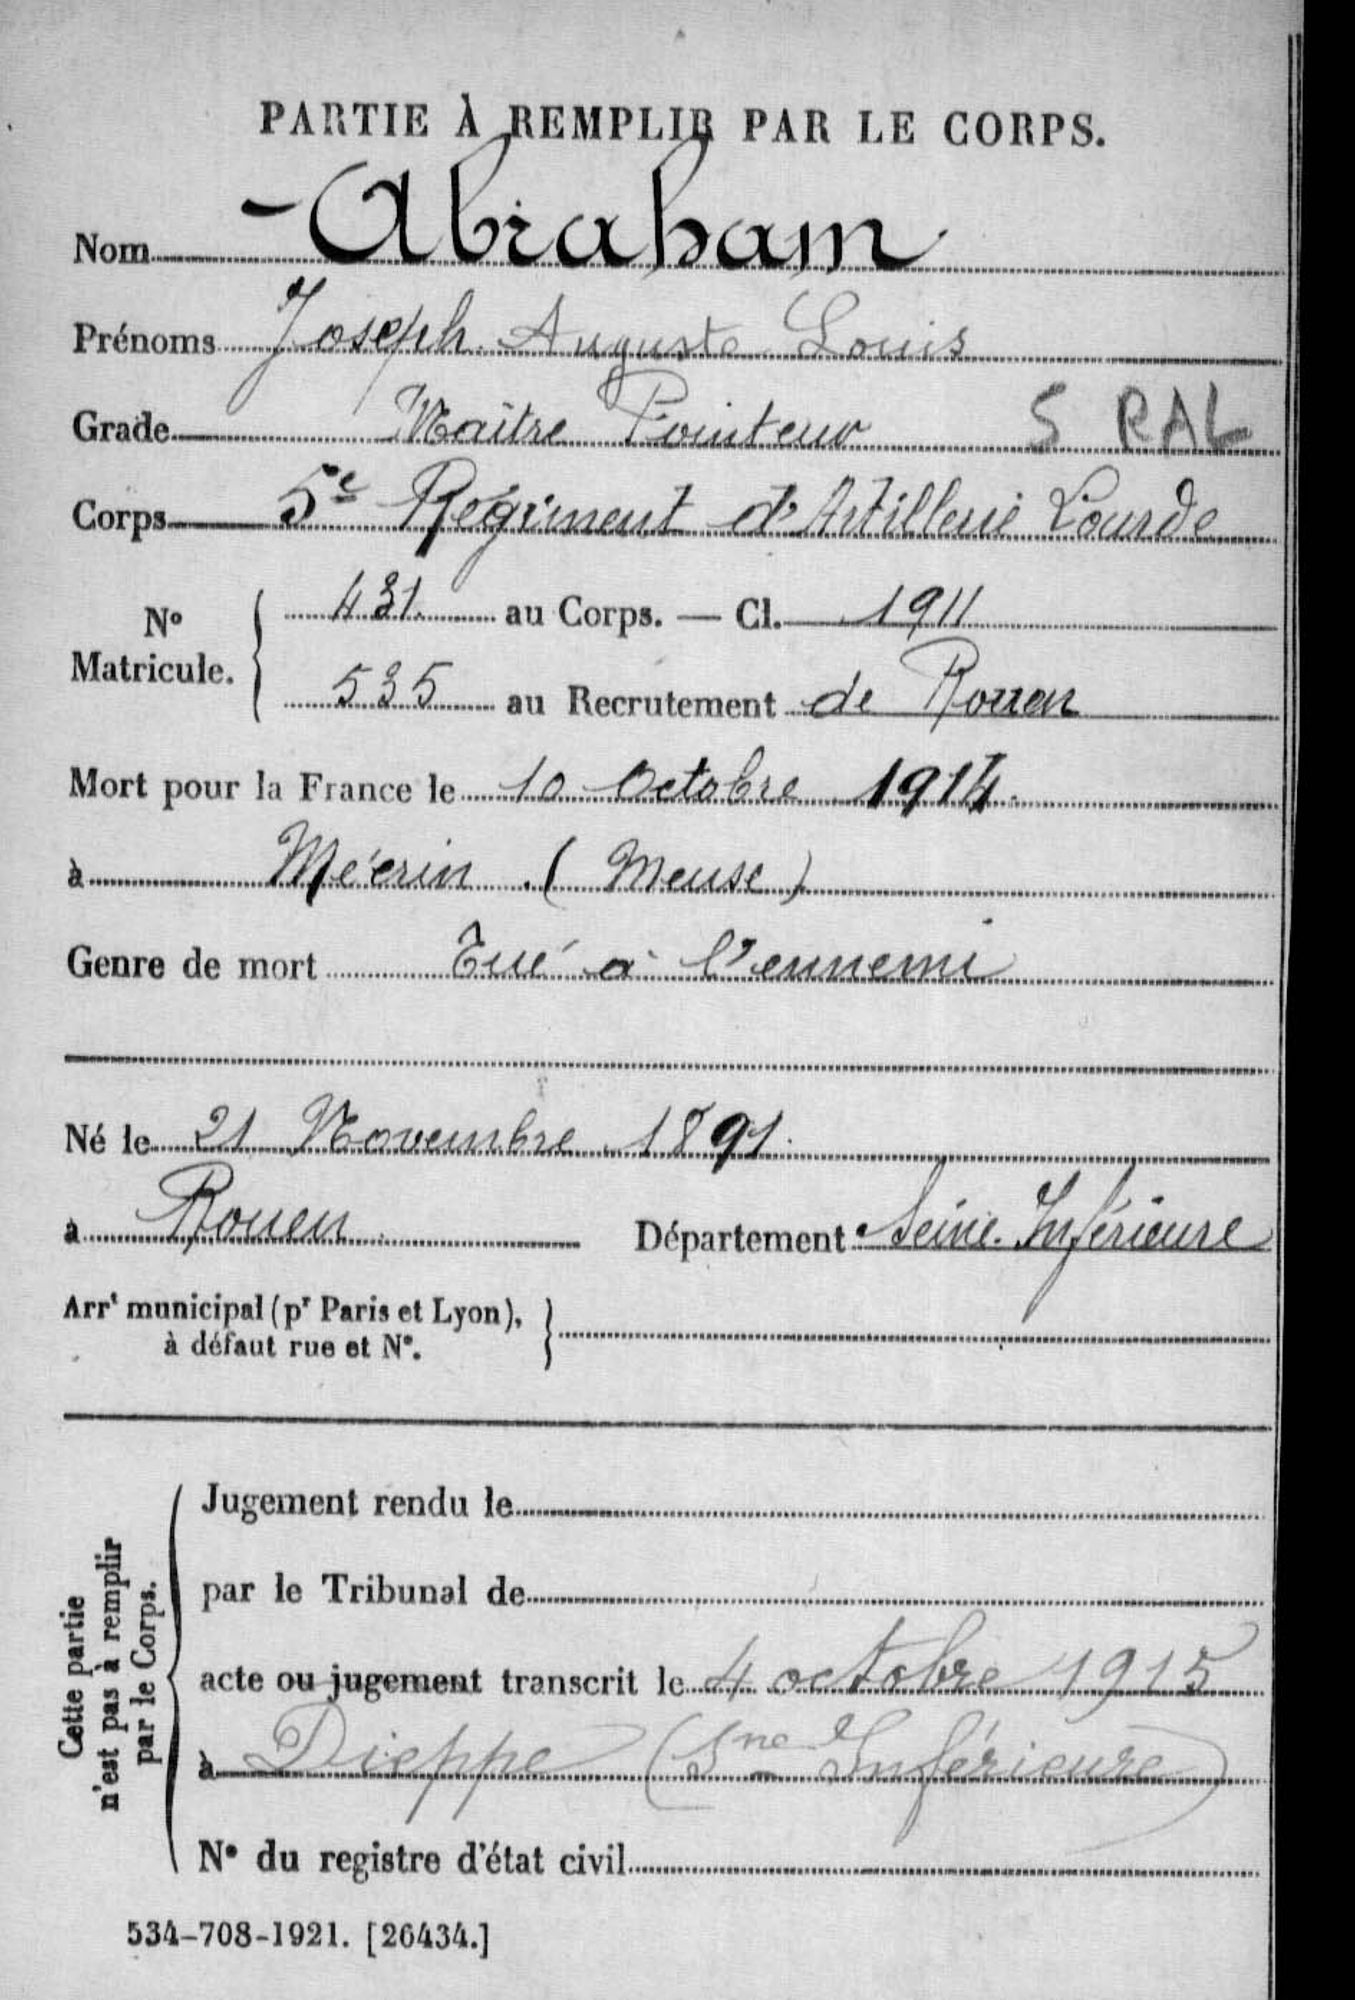 PARTIE À REMPLIR PAR LE CORPS.
Nom Abraham
Prénoms Joseph Auguste Louis
Grade Maître Pointeur 5 RAL
Corps 5e Régiment d'Artillerie Lourde
No Matricule. { 431 au Corps. — Cl. 1911
535 au Recrutement de Rouen
Mort pour la France le 10 Octobre 1914.
à Méerin (Meuse)
Genre de mort Tué à l'ennemi
Né le 21 Novembre 1891.
à Rouen Département Seine-Inférieure
Arrt municipal (pr Paris et Lyon),
à défaut rue et No.
Cette partie
n'est pas à remplir
par le Corps.
Jugement rendu le
par le Tribunal de
acte ou jugement transcrit le 4 octobre 1915
à Dieppe (Sne Inférieure)
No du registre d'état civil
534-708-1921. [26434.]